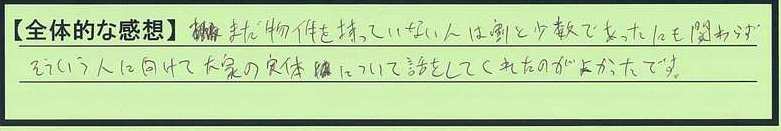 【全体的な感想】まだ物件を持っていない人は割と少数であったにも関わらず
そういう人に向けて大家の実体について話をしてくれたのがよかったです。